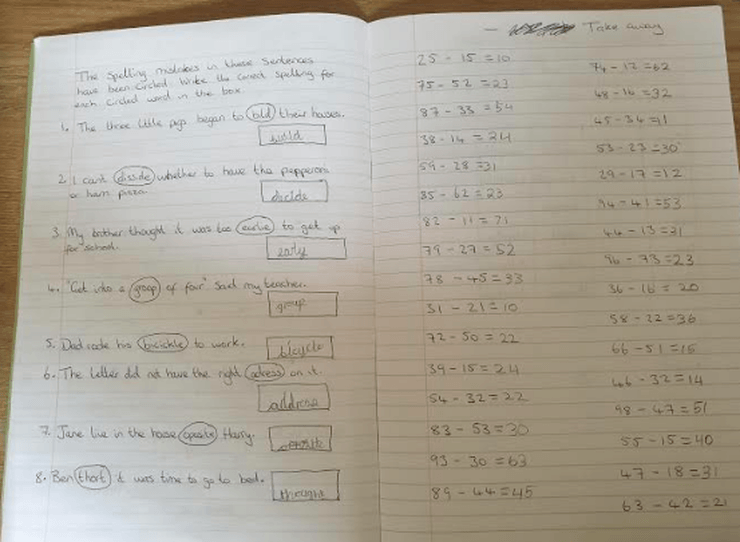 The Spelling mistakes in these Sentences
have been circled. Write the correct spelling for
each circled word in the box.
1. The three little pigs began to bild their houses.
build
2. I can't disside whether to have the pepperoni
or ham pizza.
decide
3. My brother thought it was too earlie to get up
for school.
early
4. "Get into a groop of four" said my teacher.
group
5. Dad rode his bicickle to work.
bicycle
6. The letter did not have the right adress on it.
address
7. Jane live in the house opesite Harry.
8. Ben thort it was time to go to bed.
thought
Take away
25 - 15 = 10
75 - 52 = 23
87 - 33 = 54
38 - 14 = 24
59 - 28 = 31
85 - 62 = 23
82 - 11 = 71
79 - 27 = 52
78 - 45 = 33
31 - 21 = 10
72 - 50 = 22
39 - 15 = 24
54 - 32 = 22
83 - 53 = 30
93 - 30 = 63
89 - 44 = 45
74 - 12 = 62
48 - 16 = 32
45 - 34 = 11
53 - 23 = 30
29 - 17 = 12
94 - 41 = 53
44 - 13 = 31
96 - 73 = 23
36 - 16 = 20
58 - 22 = 36
66 - 51 = 15
46 - 32 = 14
98 - 47 = 51
55 - 15 = 40
47 - 18 = 31
63 - 42 = 21